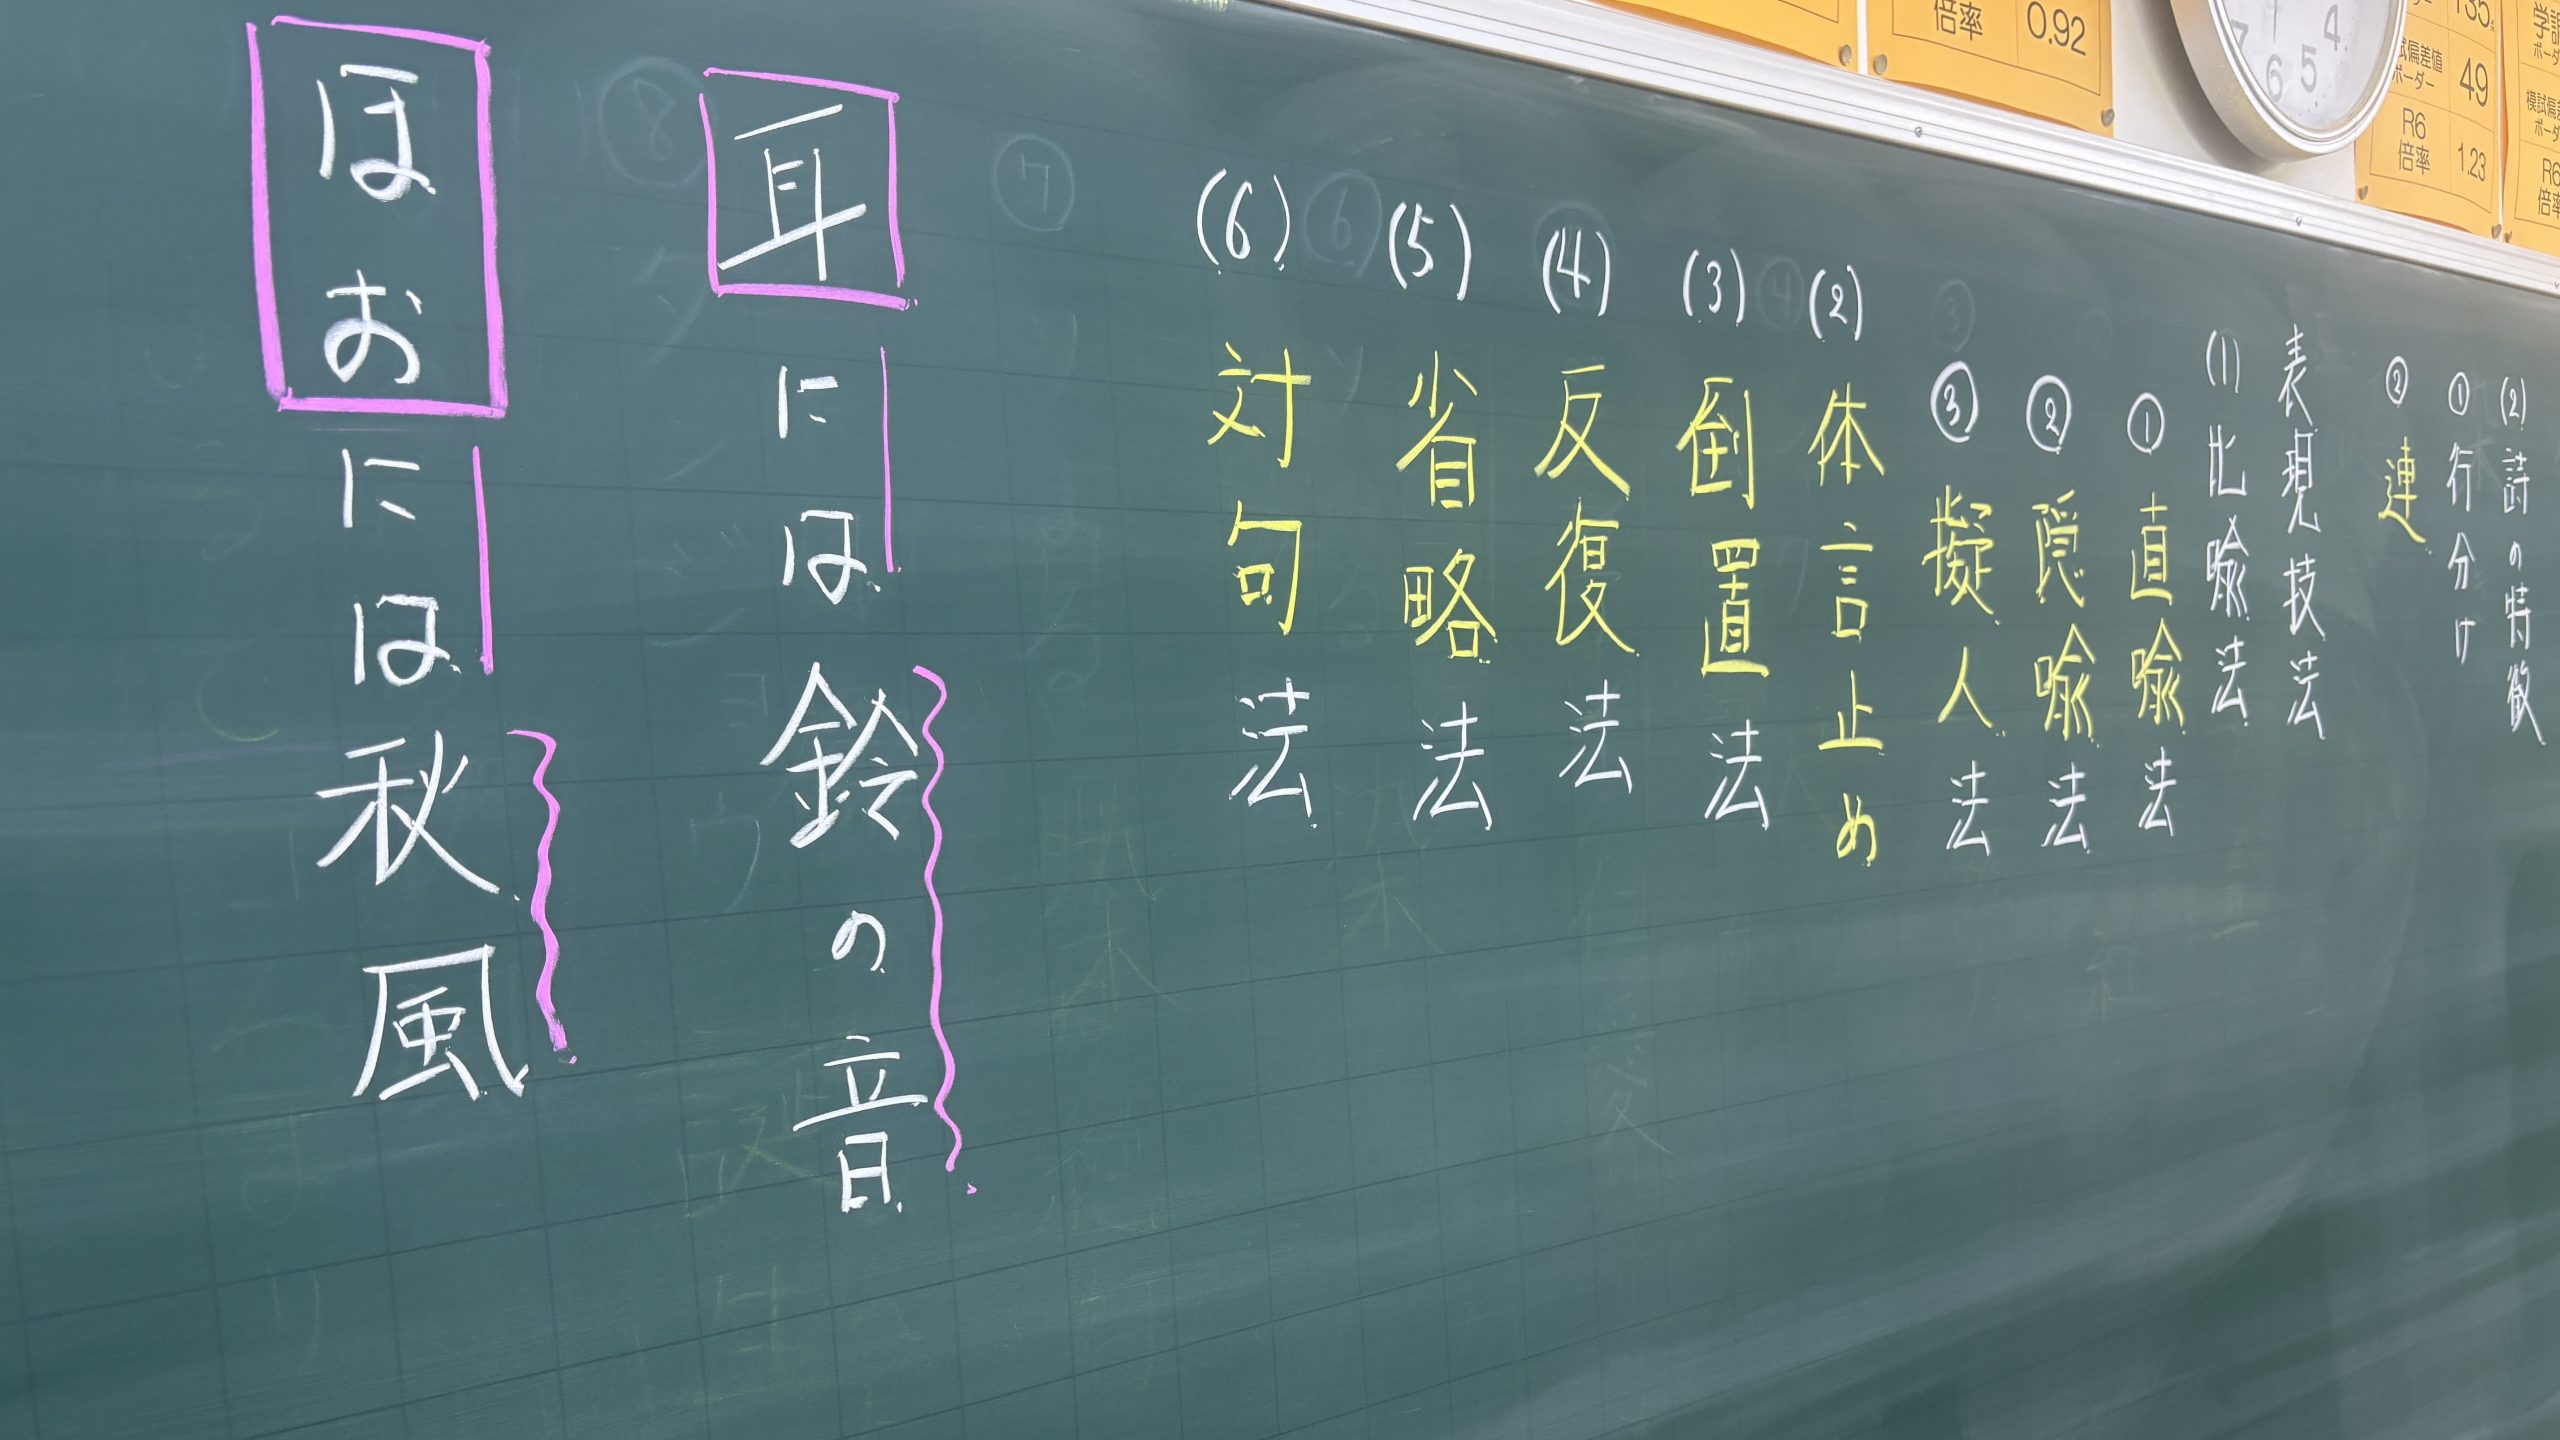 (2) 詩の特徴
① 行分け
② 連
表現技法
(1) 比喩法
① 直喩法
② 隠喩法
③ 擬人法
(2) 体言止め
(3) 倒置法
(4) 反復法
(5) 省略法
(6) 対句法
耳には鈴の音
ほおには秋風
倍率 0.92
7 6 5 4
135
試偏差値 ボーダー 49
R6 倍率 1.23
学調 ボーダ
模試偏差 ボーダ
R6 倍率